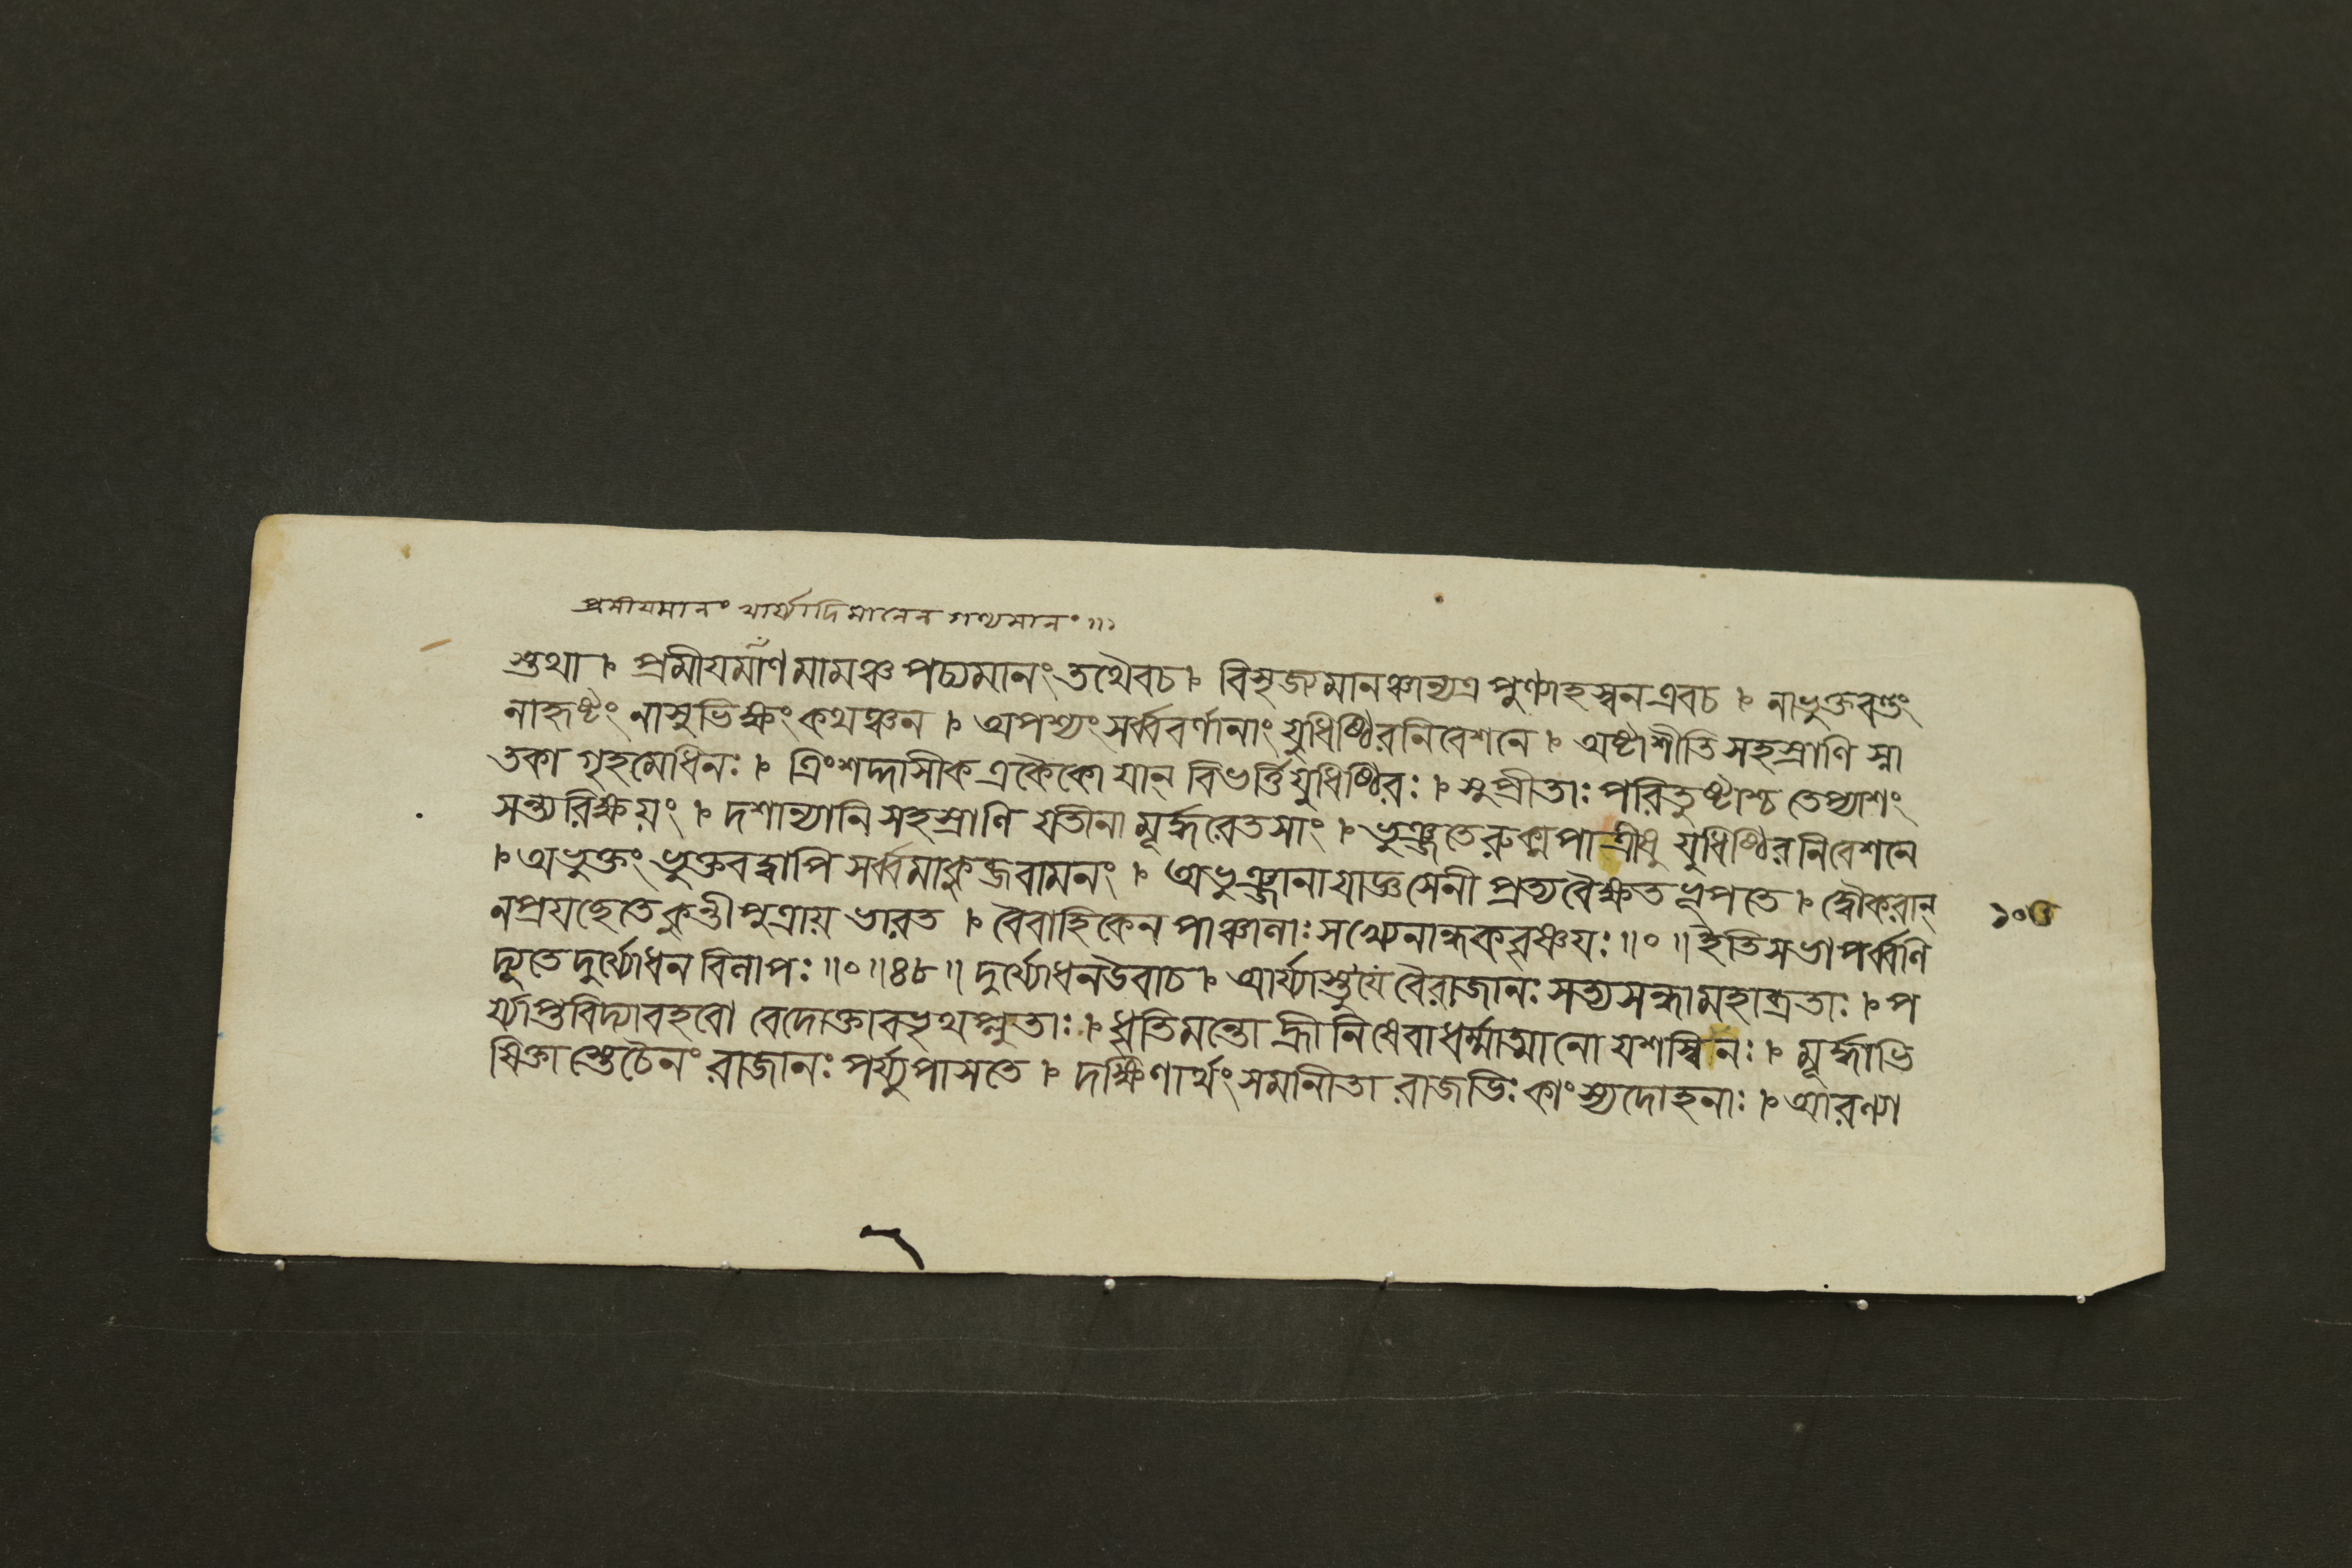 প্রমীযমানং খার্য্যাদিমানেন গণ্যমানং ॥
স্তথা । প্রমীযমাণমামঞ্চ পচ্যমানং তথৈবচ । বিসৃজ্যমানঞ্চান্যত্র পুণ্যাহস্বন এবচ । নাভুক্তবন্তং
নাহৃষ্টং নাসুভিক্ষং কথঞ্চন । অপশ্যং সর্ব্ববর্ণানাং যুধিষ্ঠিরনিবেশনে । অষ্টাশীতিসহস্রাণি স্না
তকা গৃহমেধিনঃ । ত্রিংশদ্দাসীক একৈকো যান্ বিভর্ত্তি যুধিষ্ঠিরঃ । সুপ্রীতাঃ পরিতুষ্টাশ্চ তেপ্যাশং
সন্ত্যরিক্ষয়ং । দশান্যানি সহস্রাণি যতীনামূর্দ্ধরেতসাং । ভুঞ্জতে রুক্মপাত্রীষু যুধিষ্ঠিরনিবেশনে
। অভুক্তং ভুক্তবদ্বাপি সর্ব্বমাকুব্জবামনং । অভুঞ্জানা যাজ্ঞসেনী প্রত্যবৈক্ষত ভূপতে । দ্বৌ করান্
নপ্রযছেতে কুন্তীপুত্রায় ভারত । বৈবাহিকেন পাঞ্চালাঃ সখ্যেনান্ধকবৃষ্ণযঃ ॥০॥ ইতি সভাপর্ব্বণি
দ্যূতে দুর্য্যোধনবিলাপঃ ॥০॥৪৮॥ দুর্য্যোধন উবাচ । আর্য্যাস্তু যে বৈ রাজানঃ সত্যসন্ধা মহাব্রতাঃ । প
র্য্যাপ্তবিদ্যা বহবো বেদোক্তাবভৃথপ্লুতাঃ । ধৃতিমন্তো হ্রীনিষেবা ধর্ম্মাত্মানো যশস্বিনঃ । মূর্দ্ধাভি
ষিক্তাস্তেচৈনং রাজানঃ পর্য্যুপাসতে । দক্ষিণার্থং সমানীতা রাজভিঃ কাংস্যদোহনাঃ । আরণ্যা